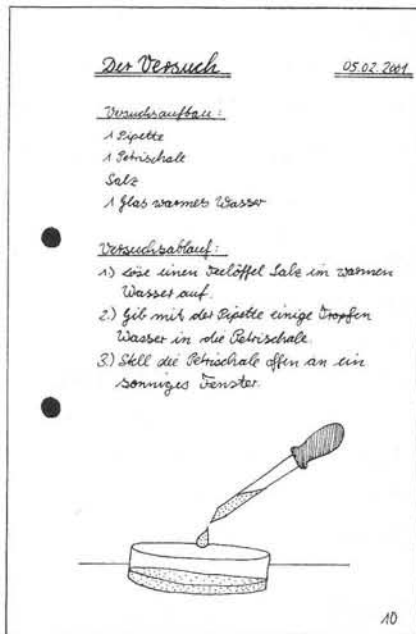 Der Versuch 05.02.2001
Versuchsaufbau:
1 Pipette
1 Petrischale
Salz
1 Glas warmes Wasser
Versuchsablauf:
1.) Löse einen Teelöffel Salz im warmen
Wasser auf.
2.) Gib mit der Pipette einige Tropfen
Wasser in die Petrischale.
3.) Stell die Petrischale offen an ein
sonniges Fenster.
10